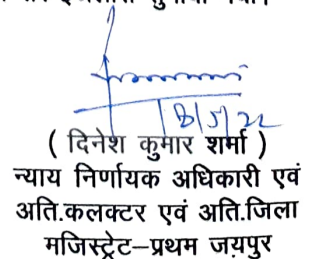 18/5/22
( दिनेश कुमार शर्मा )
न्याय निर्णायक अधिकारी एवं
अति.कलक्टर एवं अति.जिला
मजिस्ट्रेट–प्रथम जयपुर